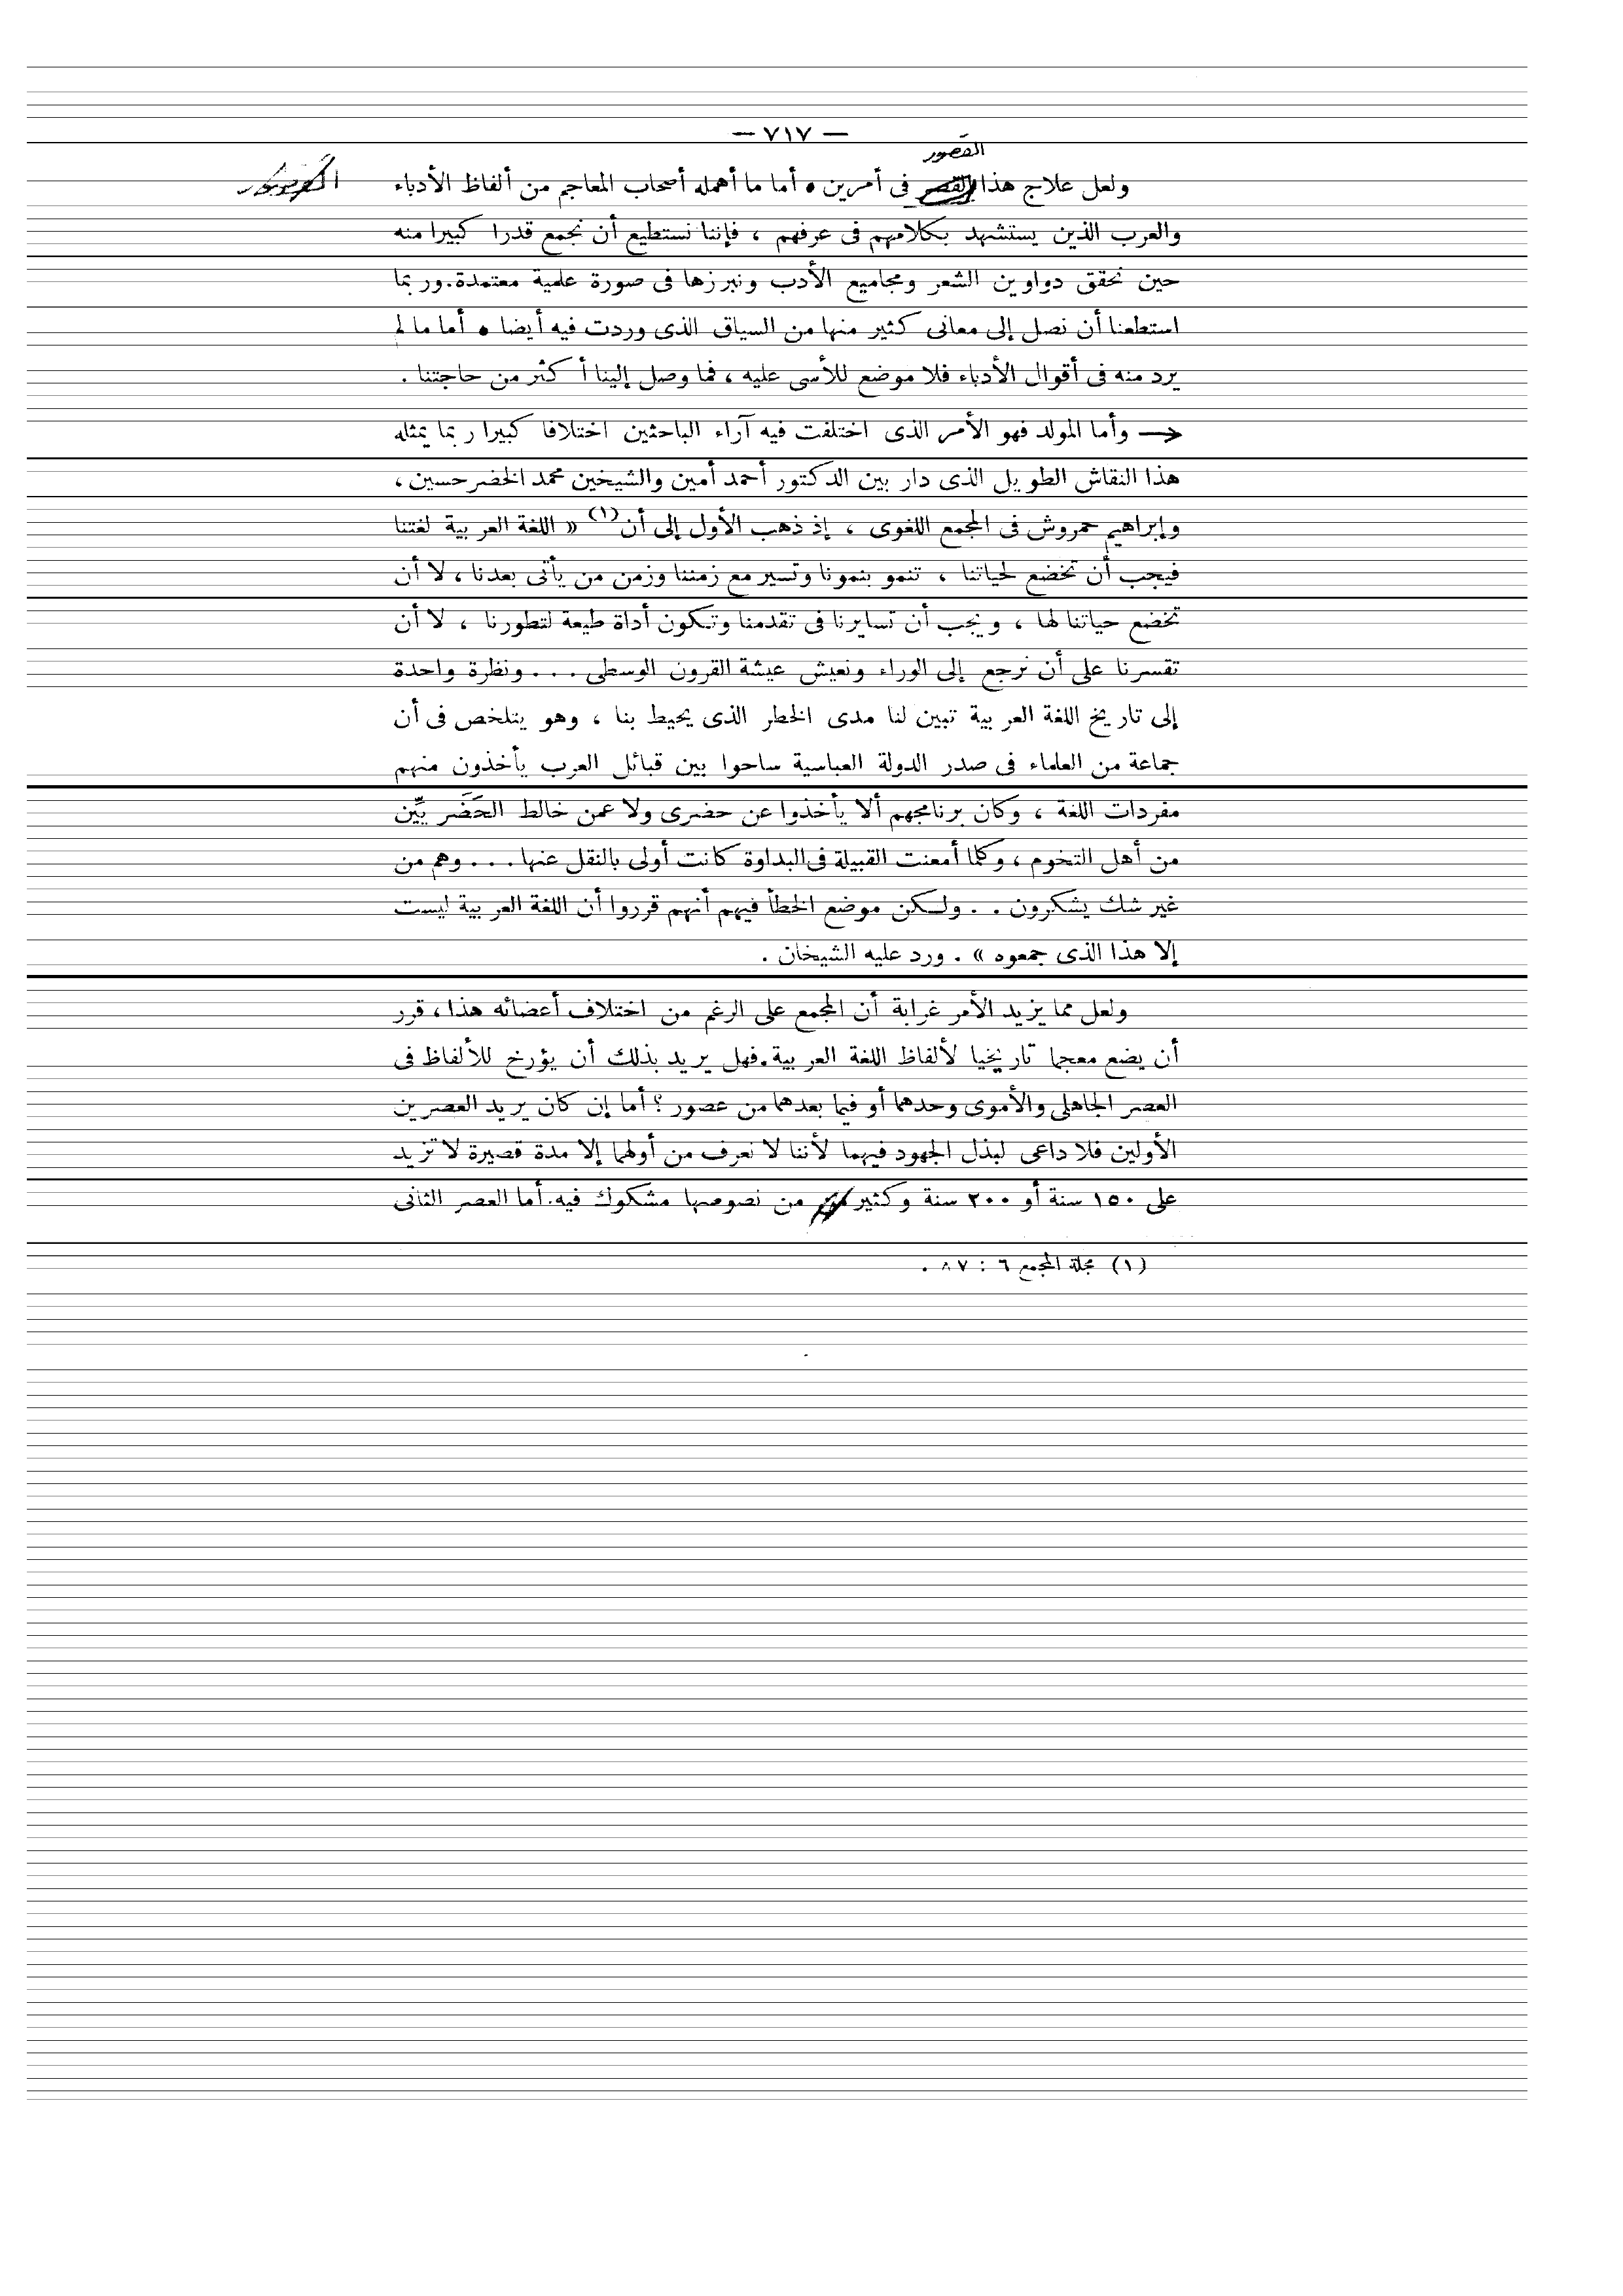 — ٧١٧ —
القصور
ولعل علاج هذا القصر فى أمرين . أما ما أهمله أصحاب المعاجم من ألفاظ الأدباء
والعرب الذين يستشهد بكلامهم فى عرفهم ، فإننا نستطيع أن نجمع قدرا كبيرا منه
حين نحقق دواوين الشعر ومجاميع الأدب ونبرزها فى صورة علمية معتمدة . وربما
استطعنا أن نصل إلى معانى كثير منها من السياق الذى وردت فيه أيضا . أما ما لم
يرد منه فى أقوال الأدباء فلا موضع للأسى عليه ، فما وصل إلينا أكثر من حاجتنا .
وأما المولد فهو الأمر الذى اختلفت فيه آراء الباحثين اختلافا كبيرا ربما يمثله
هذا النقاش الطويل الذى دار بين الدكتور أحمد أمين والشيخين محمد الخضر حسين ،
وإبراهيم حمروش فى المجمع اللغوى ، إذ ذهب الأول إلى أن (١) « اللغة العربية لغتنا
فيجب أن تخضع لحياتنا ، تنمو بنمونا وتسير مع زمننا وزمن من يأتى بعدنا ، لا أن
تخضع حياتنا لها ، ويجب أن تسايرنا فى تقدمنا وتكون أداة طيعة لتطورنا ، لا أن
تقسرنا على أن نرجع إلى الوراء ونعيش عيشة القرون الوسطى . . . ونظرة واحدة
إلى تاريخ اللغة العربية تبين لنا مدى الخطر الذى يحيط بنا ، وهو يتلخص فى أن
جماعة من العلماء فى صدر الدولة العباسية ساحوا بين قبائل العرب يأخذون منهم
مفردات اللغة ، وكان برنامجهم ألا يأخذوا عن حضرى ولا عمن خالط الحَضَريِّين
من أهل التخوم ، وكلما أمعنت القبيلة فى البداوة كانت أولى بالنقل عنها . . . وهم من
غير شك يشكرون . . ولكن موضع الخطأ فيهم أنهم قرروا أن اللغة العربية ليست
إلا هذا الذى جمعوه » . ورد عليه الشيخان .
ولعل مما يزيد الأمر غرابة أن المجمع على الرغم من اختلاف أعضائه هذا ، قرر
أن يضع معجما تاريخيا لألفاظ اللغة العربية . فهل يريد بذلك أن يؤرخ للألفاظ فى
العصر الجاهلى والأموى وحدهما أو فيما بعدهما من عصور ؟ أما إن كان يريد العصرين
الأولين فلا داعى لبذل الجهود فيهما لأننا لا نعرف من أولهما إلا مدة قصيرة لا تزيد
على ١٥٠ سنة أو ٢٠٠ سنة وكثير من نصوصها مشكوك فيه . أما العصر الثانى
(١) مجلة المجمع ٦ : ٨٧ .